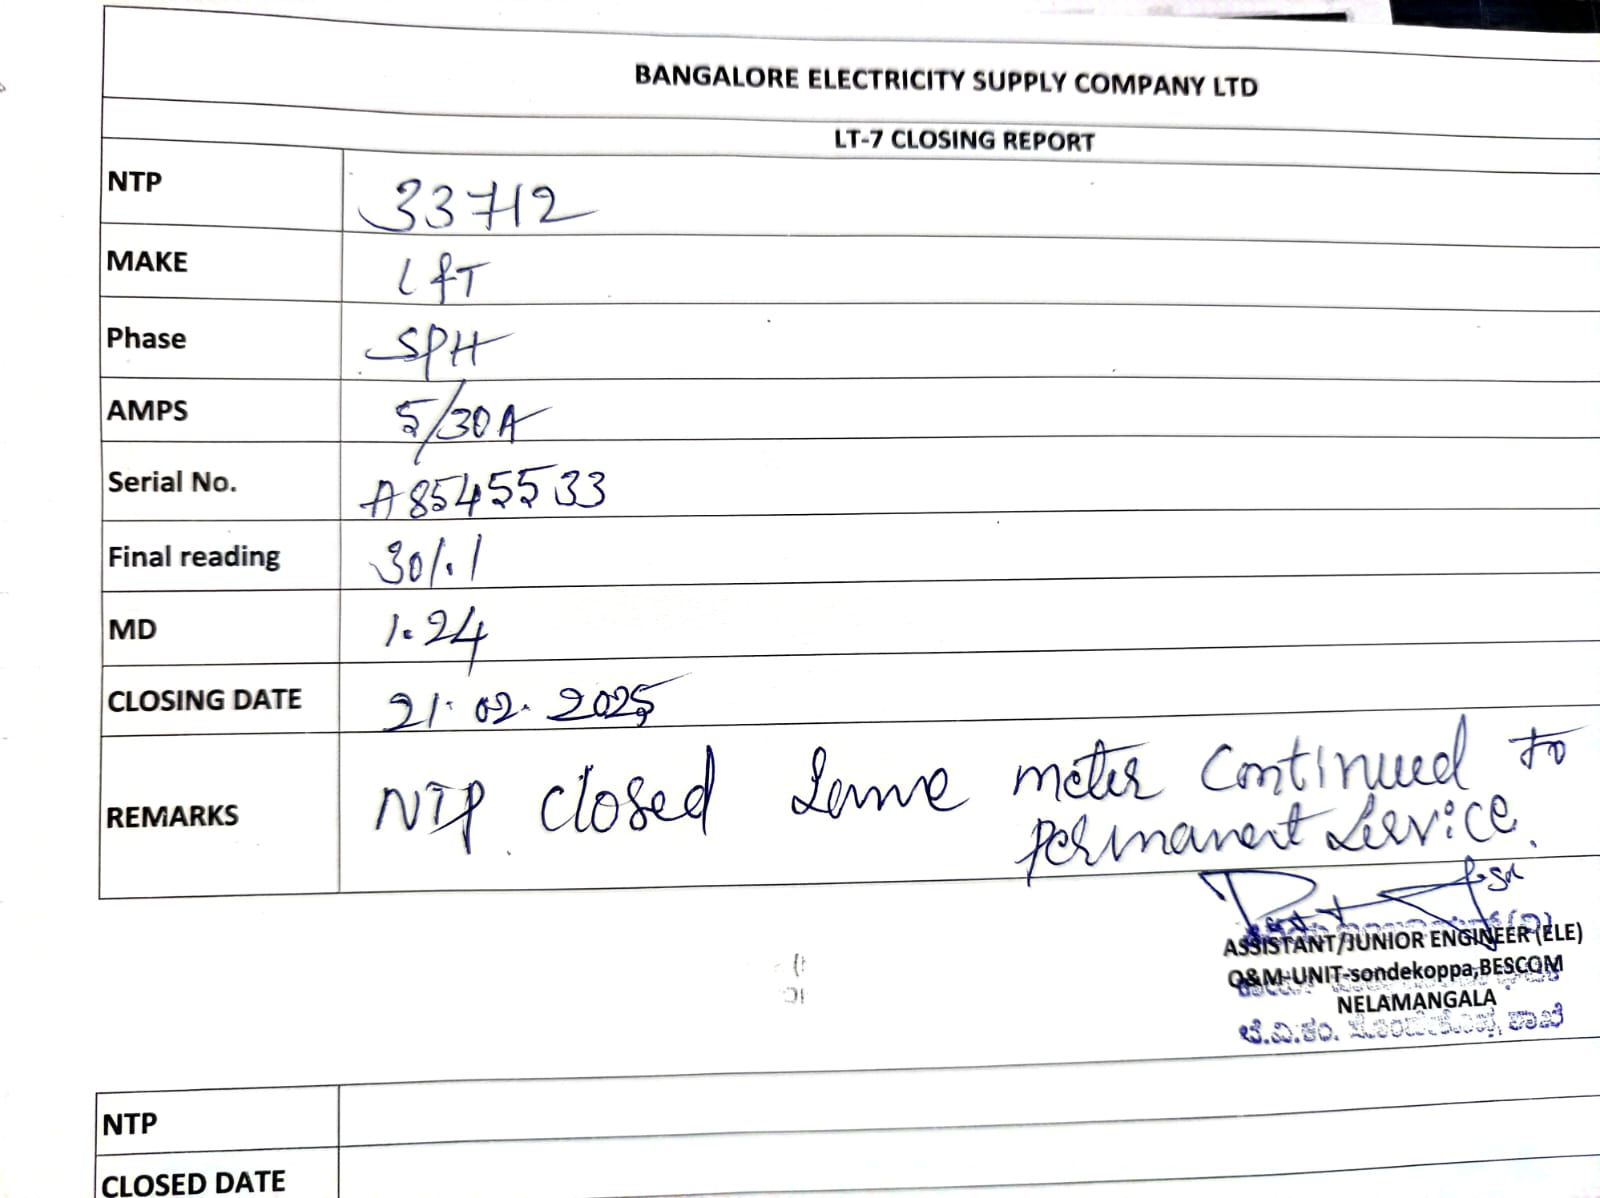 BANGALORE ELECTRICITY SUPPLY COMPANY LTD
LT-7 CLOSING REPORT
NTP 33712
MAKE L&T
Phase SPH
AMPS 5/30A
Serial No. A8545533
Final reading 301.1
MD 1.24
CLOSING DATE 21.02.2025
REMARKS NTP closed Same meter Continued to
permanent Service.
ASSISTANT/JUNIOR ENGINEER (ELE)
O&M-UNIT-sondekoppa,BESCOM
NELAMANGALA
ಬೆ.ವಿ.ಕಂ. ಸೊಂಡೆಕೊಪ್ಪ ಶಾಖೆ
NTP
CLOSED DATE